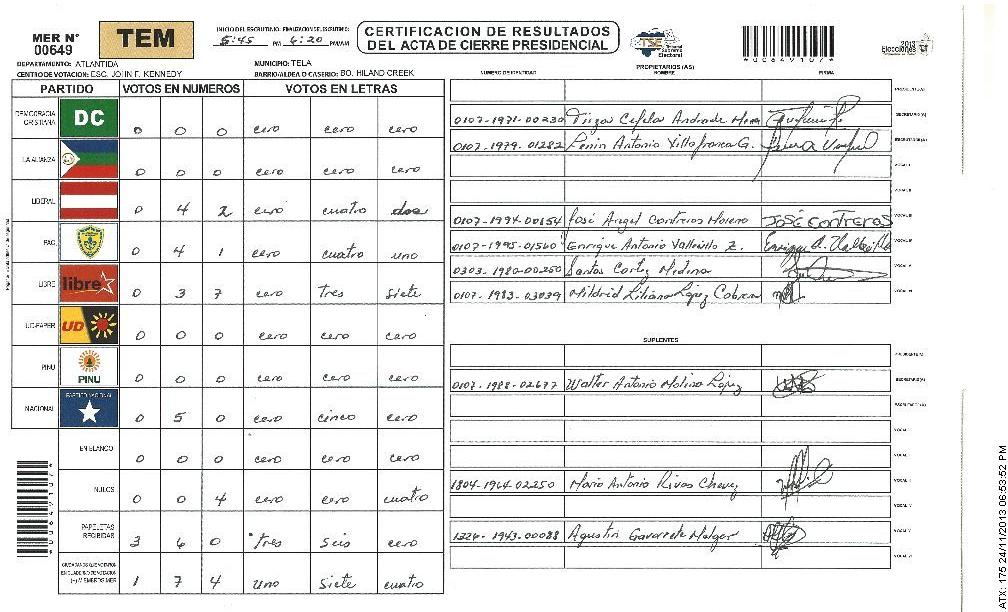 MER N° 00649
TEM
INICIO DEL ESCRUTINIO: FINALIZACION DEL ESCRUTINIO:
5:45 PM 6:20 PM/AM
CERTIFICACION DE RESULTADOS
DEL ACTA DE CIERRE PRESIDENCIAL
TSE Tribunal Supremo Electoral
2013 Elecciones
*0064910 7*
DEPARTAMENTO: ATLANTIDA
MUNICIPIO: TELA
CENTRO DE VOTACION: ESC. JOHN F. KENNEDY
BARRIO/ALDEA O CASERIO: BO. HILAND CREEK
PROPIETARIOS (AS)
NUMERO DE IDENTIDAD NOMBRE FIRMA
PARTIDO VOTOS EN NUMEROS VOTOS EN LETRAS
DEMOCRACIA CRISTIANA DC 0 0 0 cero cero cero
LA ALIANZA 0 0 0 cero cero cero
LIBERAL 0 4 2 cero cuatro dos
PAC 0 4 1 cero cuatro uno
LIBRE libre 0 3 7 cero tres siete
UD-FAPER UD 0 0 0 cero cero cero
PINU PINU 0 0 0 cero cero cero
NACIONAL PARTIDO NACIONAL 0 5 0 cero cinco cero
EN BLANCO 0 0 0 cero cero cero
NULOS 0 0 4 cero cero cuatro
PAPELETAS RECIBIDAS 3 6 0 tres seis cero
CIUDADANOS QUE VOTARON EN CUADERNO DE VOTACION (+) MIEMBROS MER 1 7 4 uno siete cuatro
PRESIDENTE(A)
0107-1971-00230 Andrade SECRETARIO(A)
0107-1979-01282 Lenin Antonio Villafranca G. ESCRUTADOR(A)
VOCAL I
VOCAL II
0107-1994-00154 José Angel Contreras Moreno José Contreras VOCAL III
0107-1995-01560 Enrique Antonio Vallecillo Z. VOCAL IV
0303-1980-00250 Santos Cortez Medina VOCAL V
0107-1983-03039 Mildrid Liliana López VOCAL VI
SUPLENTES
PRESIDENTE(A)
0107-1988-02677 Walter Antonio Molina López SECRETARIO(A)
ESCRUTADOR(A)
VOCAL I
VOCAL II
1804-1964-02250 Mario Antonio Rivas Chavez VOCAL III
VOCAL IV
1326-1943-00088 Agustin VOCAL V
VOCAL VI
ATX: 175 24/11/2013 06:53:52 PM